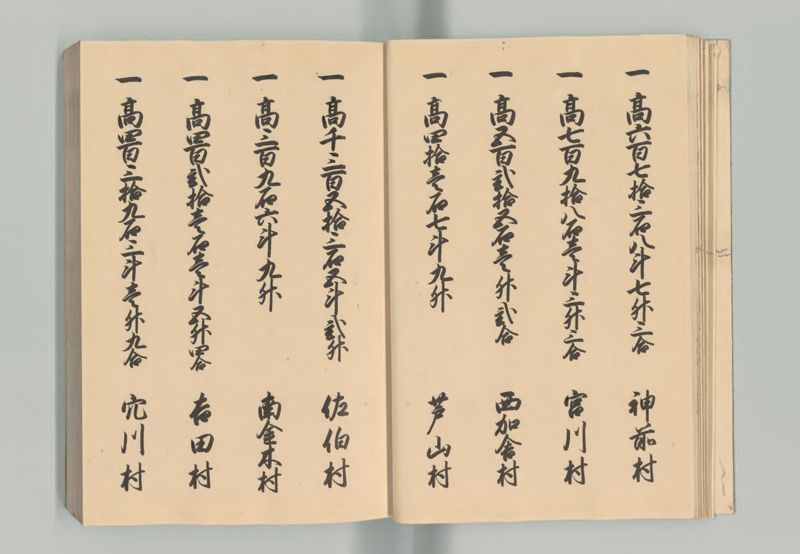 一 高六百七拾三石八斗七升三合 神前村
一 高七百九拾八石壱斗三升三合 宮川村
一 高五百弐拾五石壱升弐合 西加舎村
一 高四拾壱石七斗九升 芦山村
一 高千三百五拾三石五斗弐升 佐伯村
一 高三百九石六斗九升 南金木村
一 高四百弐拾壱石壱斗五升四合 吉田村
一 高四百三拾九石三斗壱升九合 穴川村